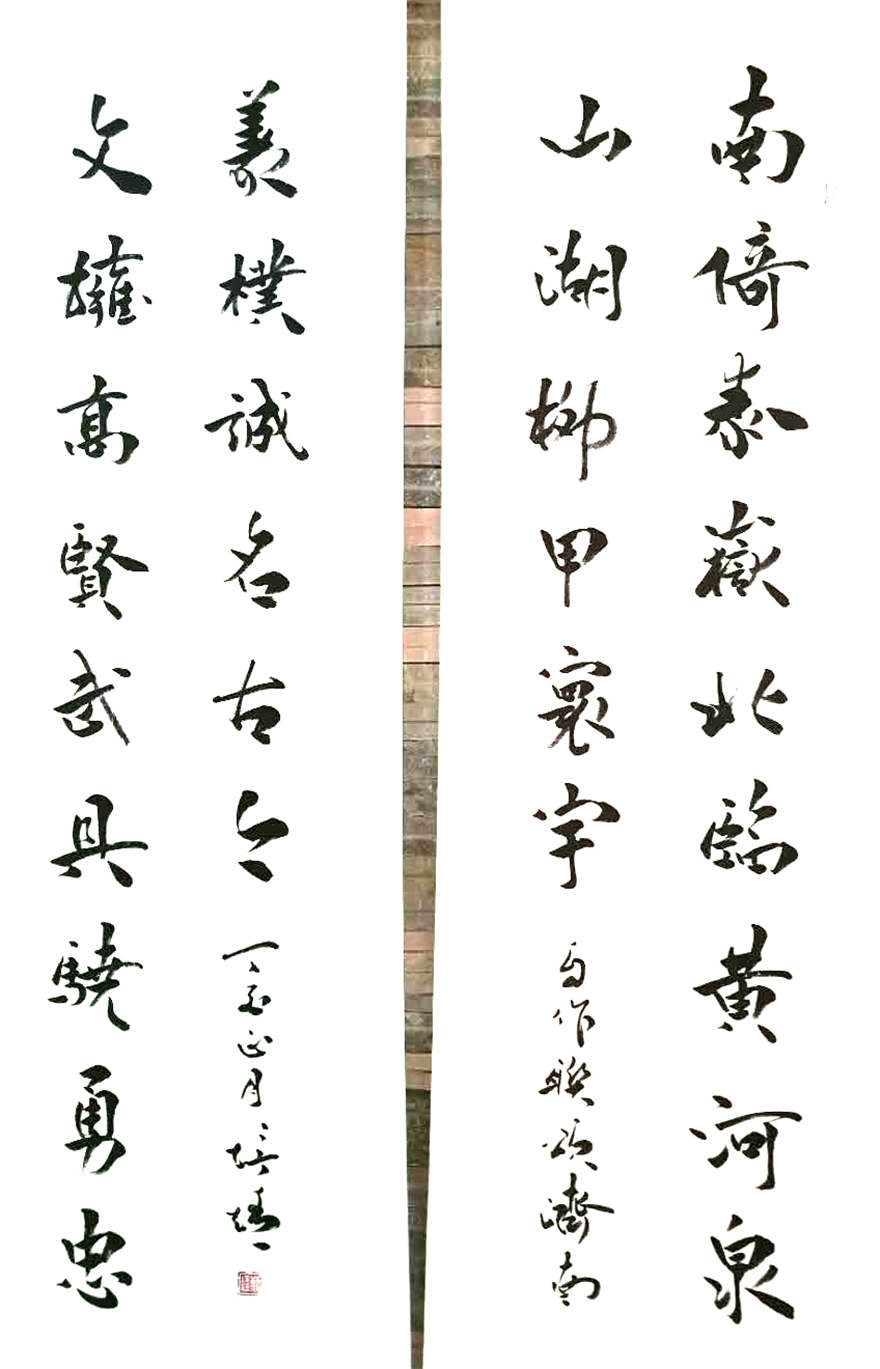 南倚泰嶽北臨黄河泉
山湖柳甲寰宇
自作聯頌濟南
文擁高賢武具驍勇忠
義樸誠名古今
丁亥正月培